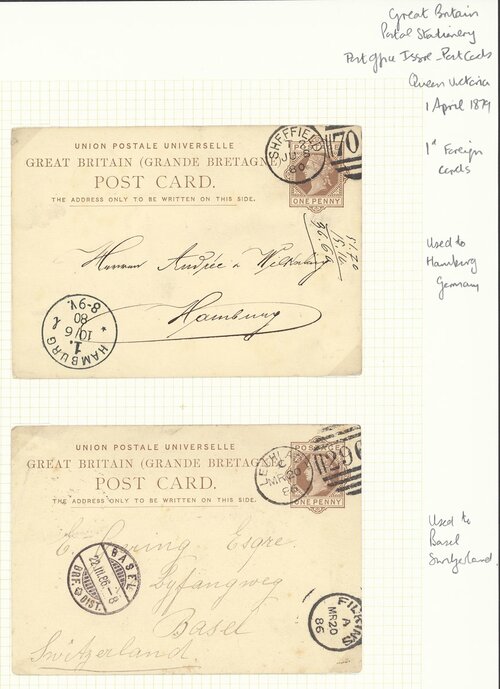 Great Britain
Postal Stationery
Post Office Issue - Post Cards
Queen Victoria
1 April 1879
1d Foreign
cards
UNION POSTALE UNIVERSELLE
GREAT BRITAIN (GRANDE BRETAGNE)
POST CARD.
THE ADDRESS ONLY TO BE WRITTEN ON THIS SIDE.
ONE PENNY
SHEFFIELD
JU 8
80
70
51.20
15.10
Herren Andrée &
Hamburg
HAMBURG
1.
10/6
80
8-9V.
Used to
Hamburg
Germany
UNION POSTALE UNIVERSELLE
GREAT BRITAIN (GRANDE BRETAGNE)
POST CARD.
THE ADDRESS ONLY TO BE WRITTEN ON THIS SIDE.
POSTAGE
ONE PENNY
LECHLADE
C
MR 20
86
296
Esqre.
Byfangweg
Basel
Switzerland
BASEL
22.III.86-8
BRF. DIST.
FILKINS
A
MR 20
86
Used to
Basel
Switzerland.